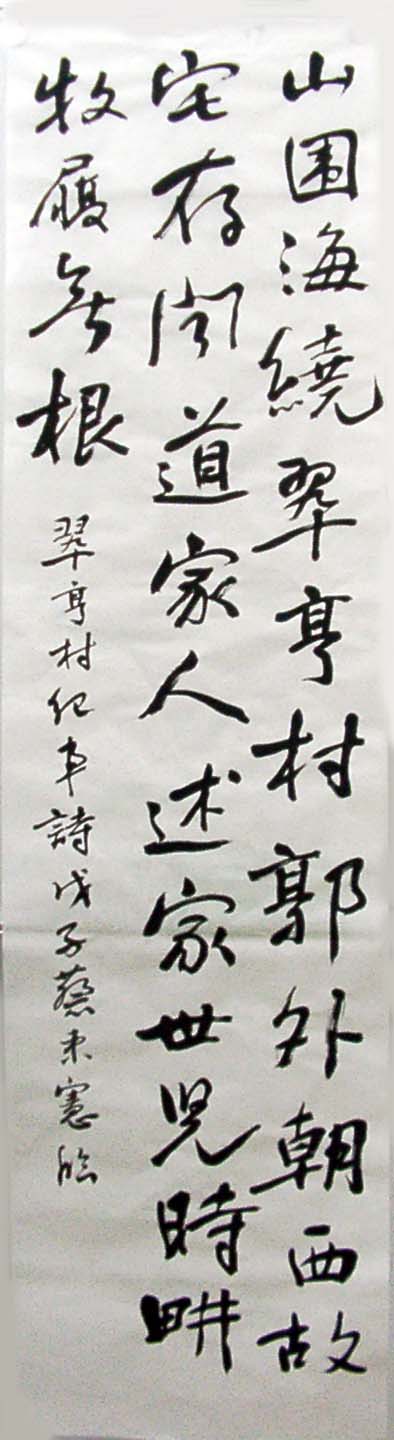 山围海繞翠亨村郭外朝西故
宅存闻道家人述家世児時畊
牧履無根
翠亨村纪事詩戊子蔡憲